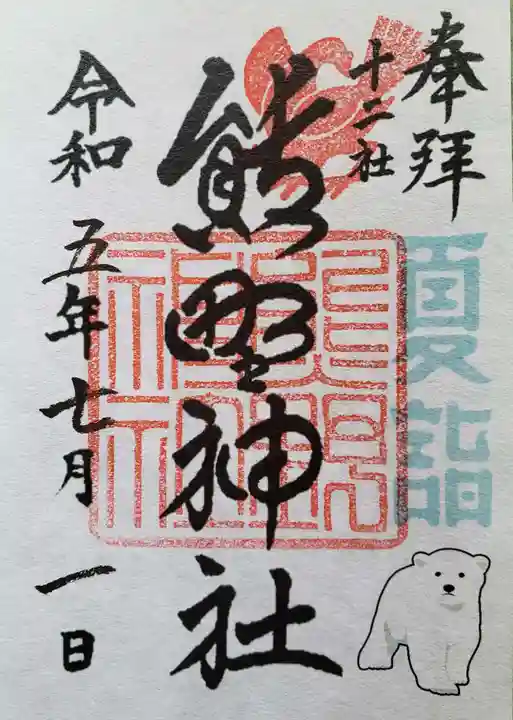 奉拝
夏詣
十二社
熊野神社
令和五年七月一日